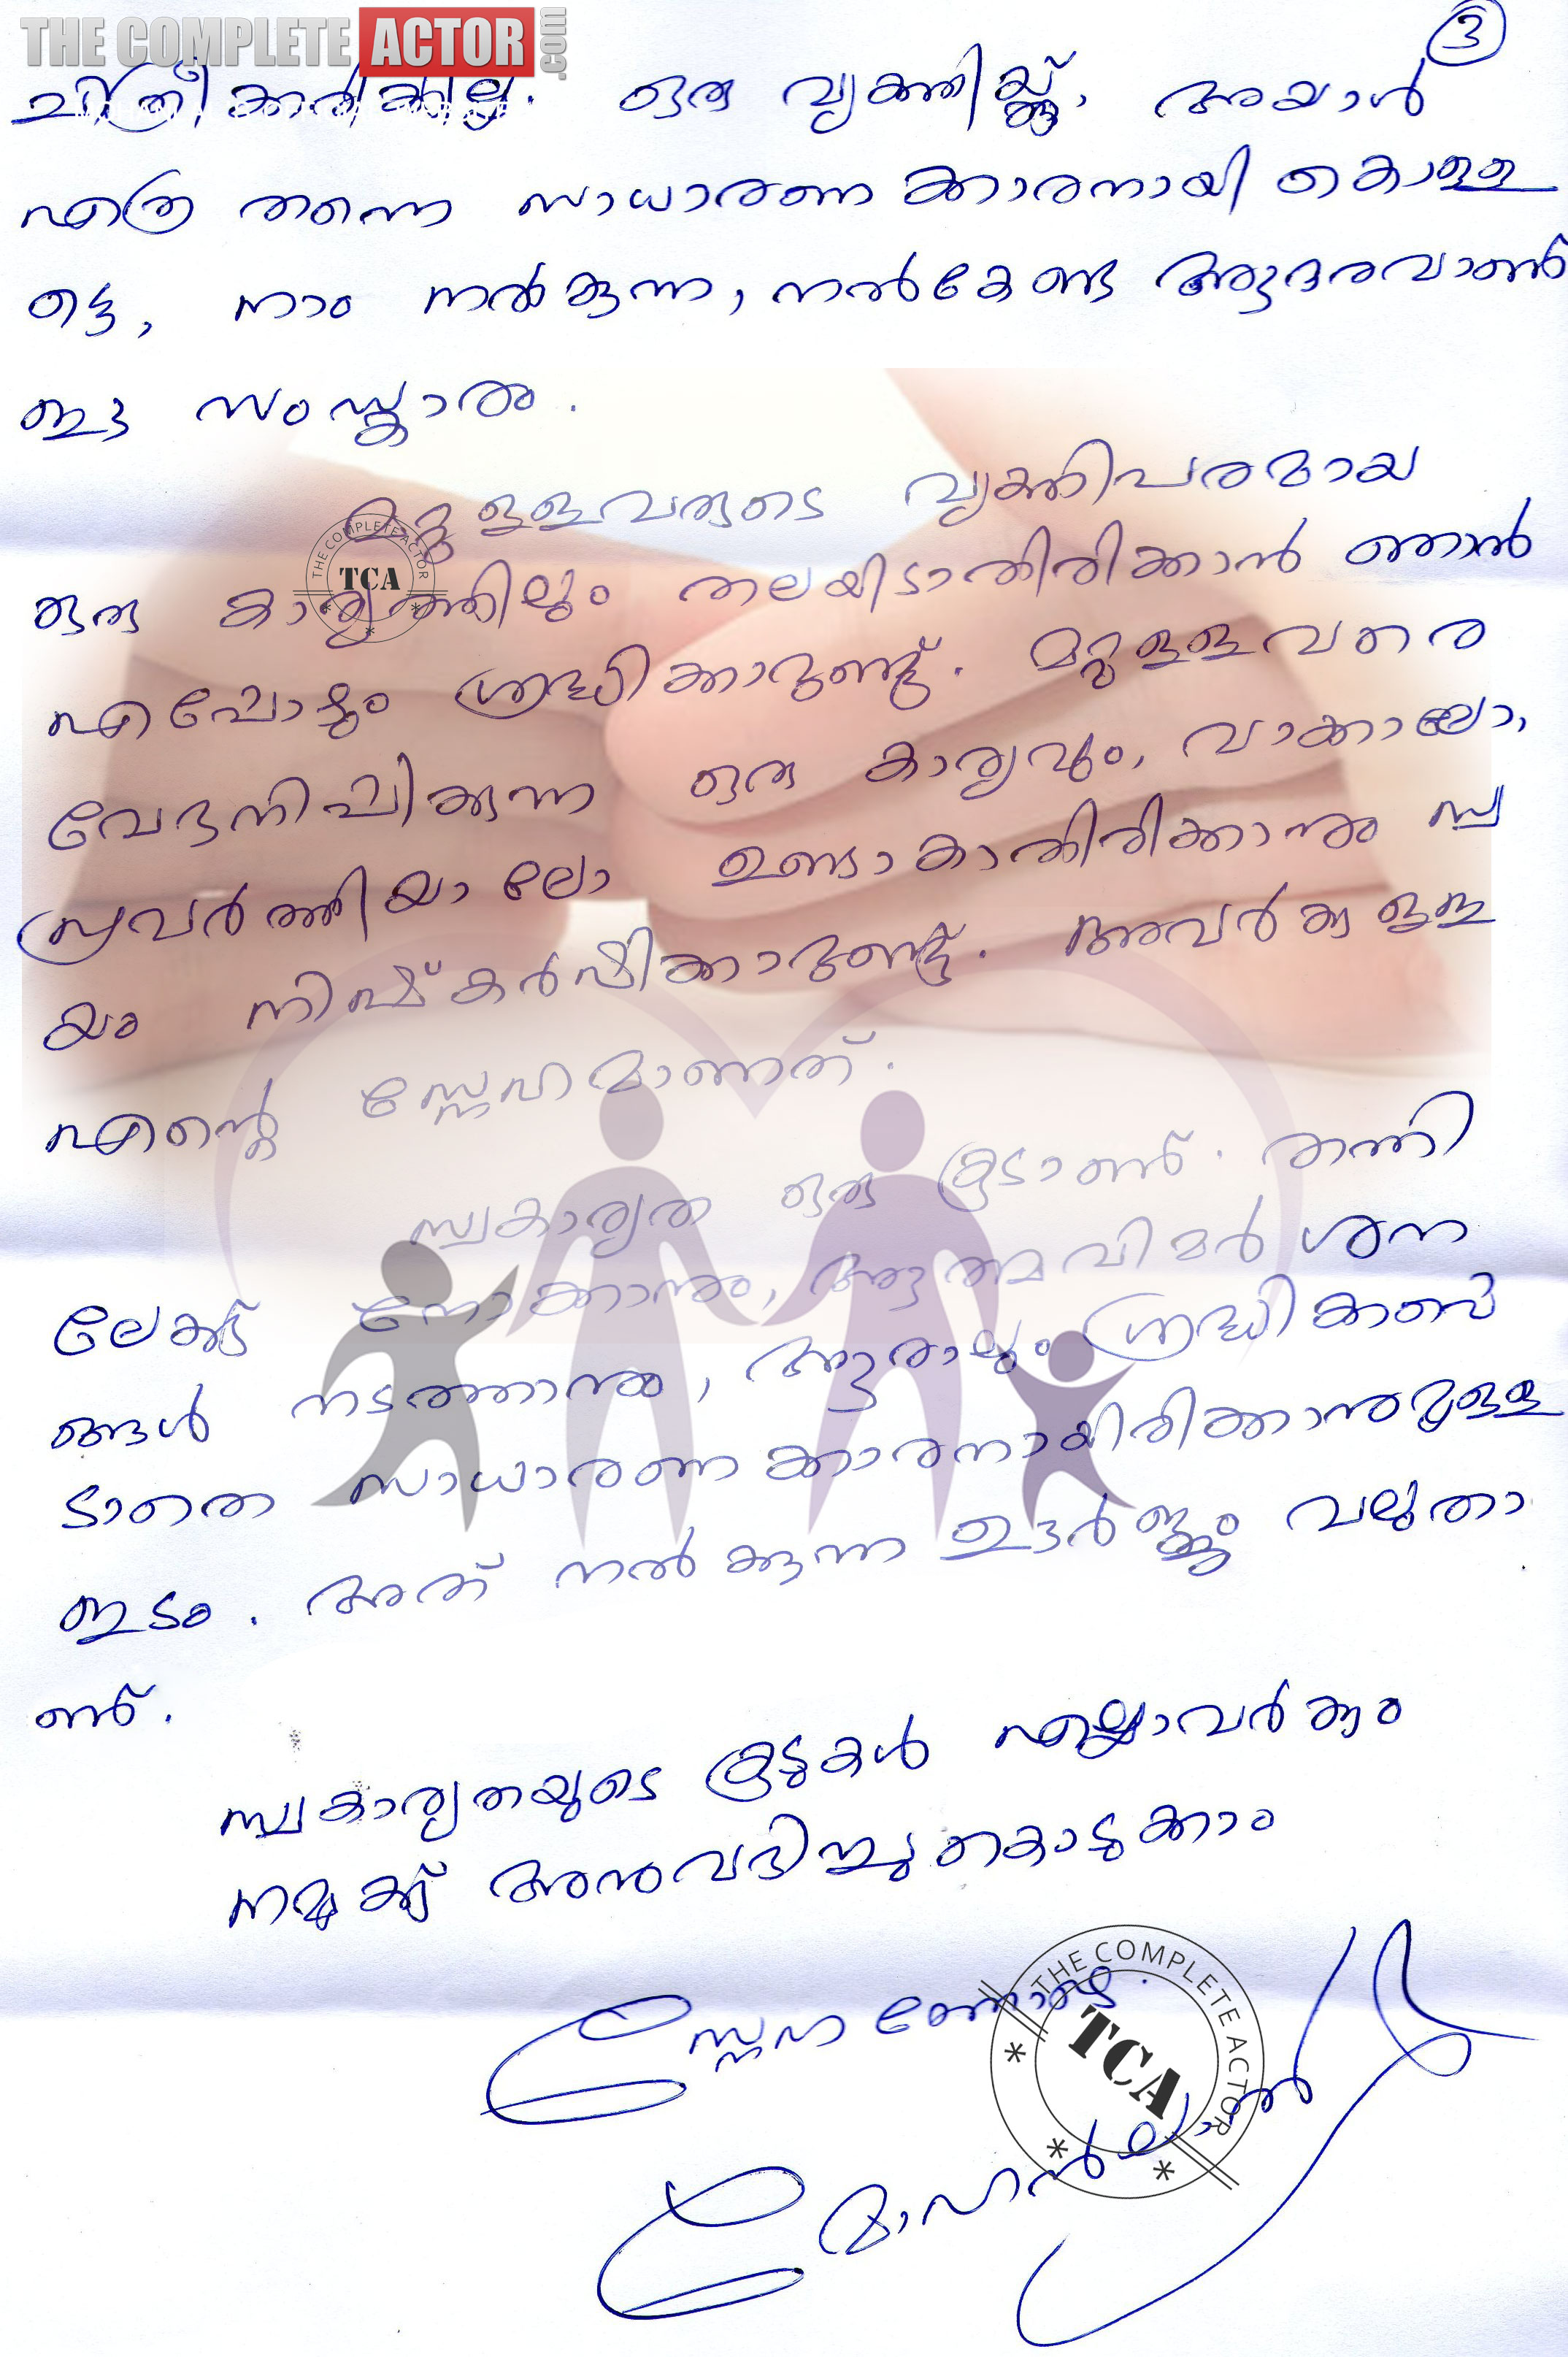 THE COMPLETE ACTOR .com
3
ചിത്രീകരിക്കില്ല. ഒരു വ്യക്തിയ്ക്ക്, അയാൾ
എത്ര തന്നെ സാധാരണക്കാരനായി കൊള്ള
ട്ടെ, നാം നൽകുന്ന, നൽകേണ്ട ആദരവാണ്
ഈ സംസ്കാരം.
മറ്റുള്ളവരുടെ വ്യക്തിപരമായ
ഒരു കാര്യത്തിലും തലയിടാതിരിക്കാൻ ഞാൻ
എപ്പോഴും ശ്രദ്ധിക്കാറുണ്ട്. മറ്റുള്ളവരെ
വേദനിപ്പിക്കുന്ന ഒരു കാര്യവും, വാക്കാലോ,
പ്രവർത്തിയാലോ ഉണ്ടാകാതിരിക്കാനും സ്വ
യം നിഷ്കർഷിക്കാറുണ്ട്. അവർക്കുള്ള
എന്റെ സ്നേഹമാണത്.
സ്വകാര്യത ഒരു കൂടാണ്. തന്നി
ലേക്ക് നോക്കാനും, ആത്മവിമർശന
ങ്ങൾ നടത്താനും, ആരാലും ശ്രദ്ധിക്കപ്പെ
ടാതെ സാധാരണക്കാരനായിരിക്കാനുമുള്ള
ഇടം. അത് നൽകുന്ന ഉൗർജ്ജം വലുതാ
ണ്.
സ്വകാര്യതയുടെ കൂടുകൾ എല്ലാവർക്കും
നമുക്ക് അനുവദിച്ചുകൊടുക്കാം
സ്നേഹത്തോടെ.
മോഹൻലാൽ
THE COMPLETE ACTOR
TCA
THE COMPLETE ACTOR
TCA